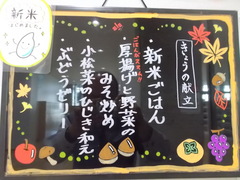 新米
はじめました。
きょうの献立
新米ごはん
ごはんがススム!
厚揚げと野菜の
みそ炒め
小松菜のひじき和え
ぶどうゼリー